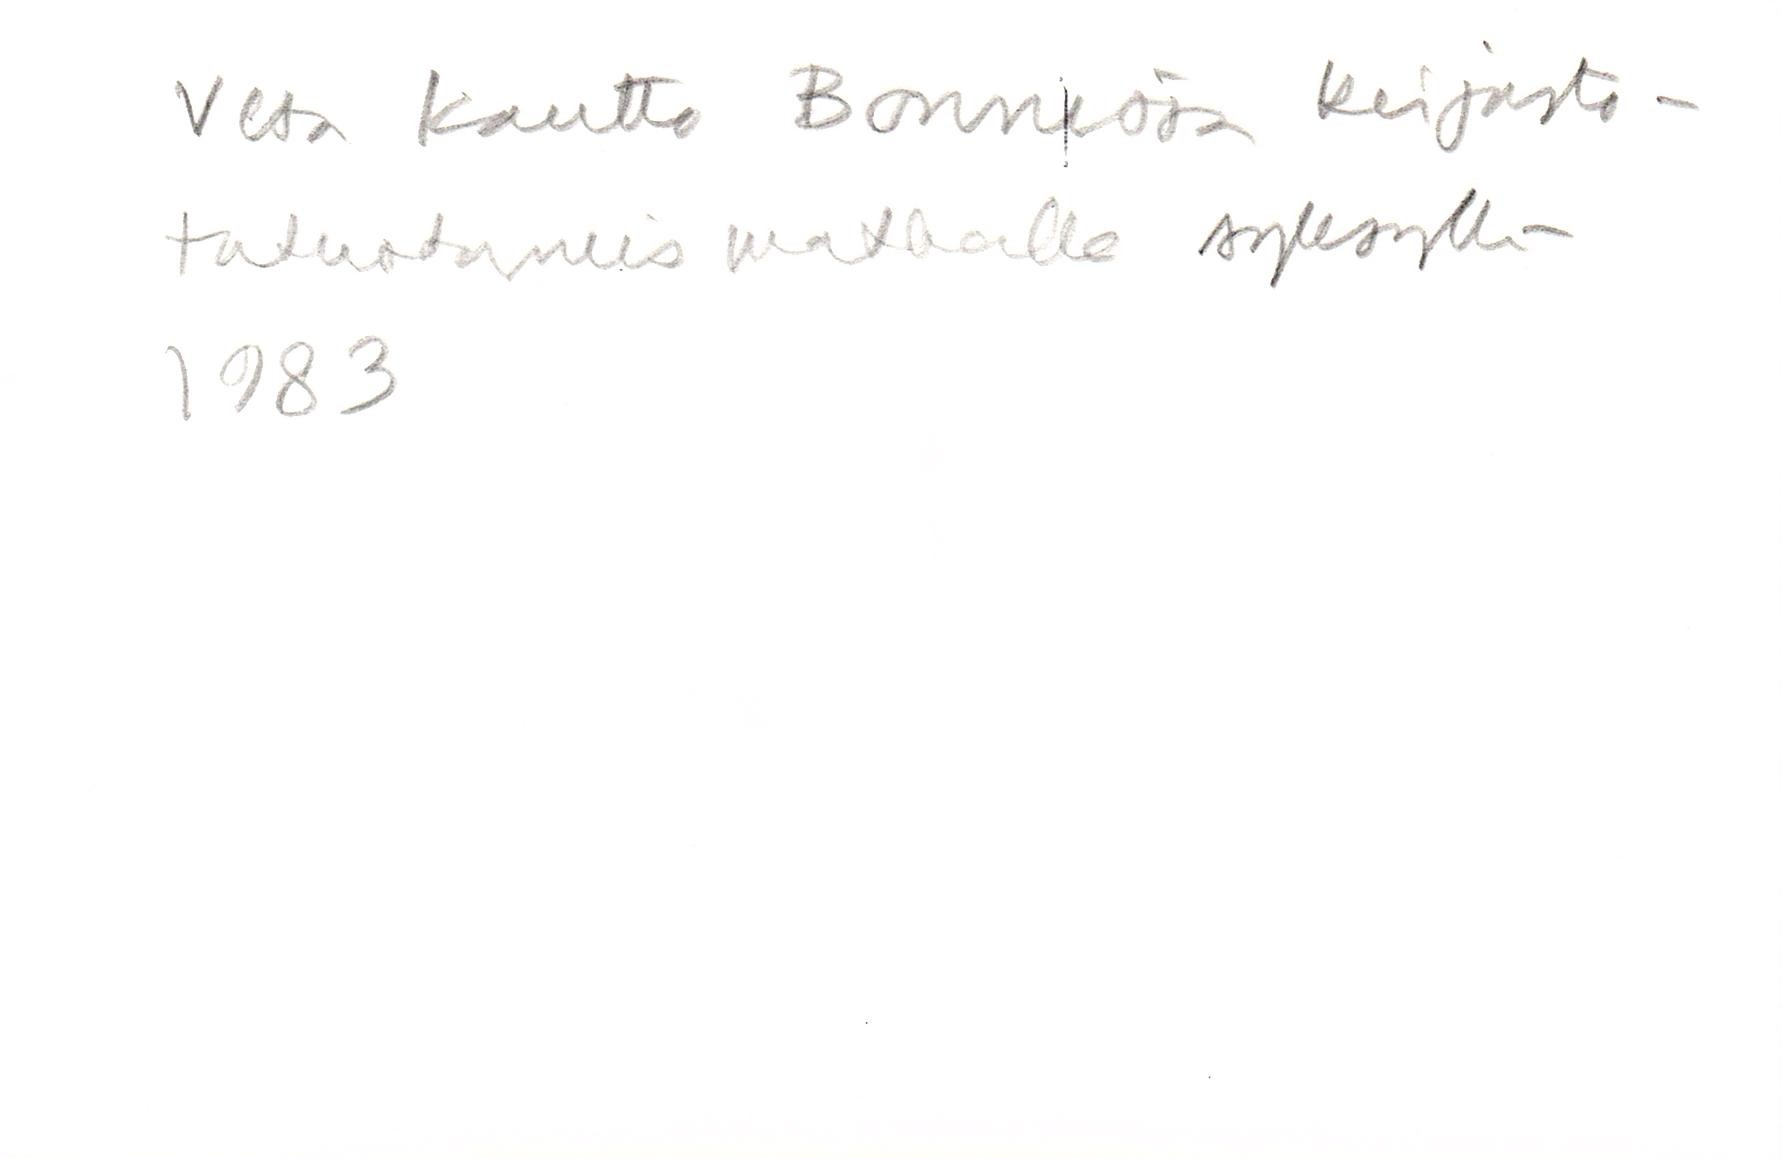 Vesa Kautto Bonnissa kirjasto-
tutustumis matkalla syksyllä
1983